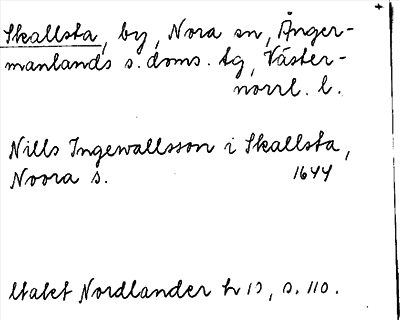 Skallsta, by, Nora sn, Ånger-
manlands s. doms. tg, Väster-
norrl. l.
Nills Ingewallsson i Skallsta,
Noora s. 1644
Nordlander s. 110.